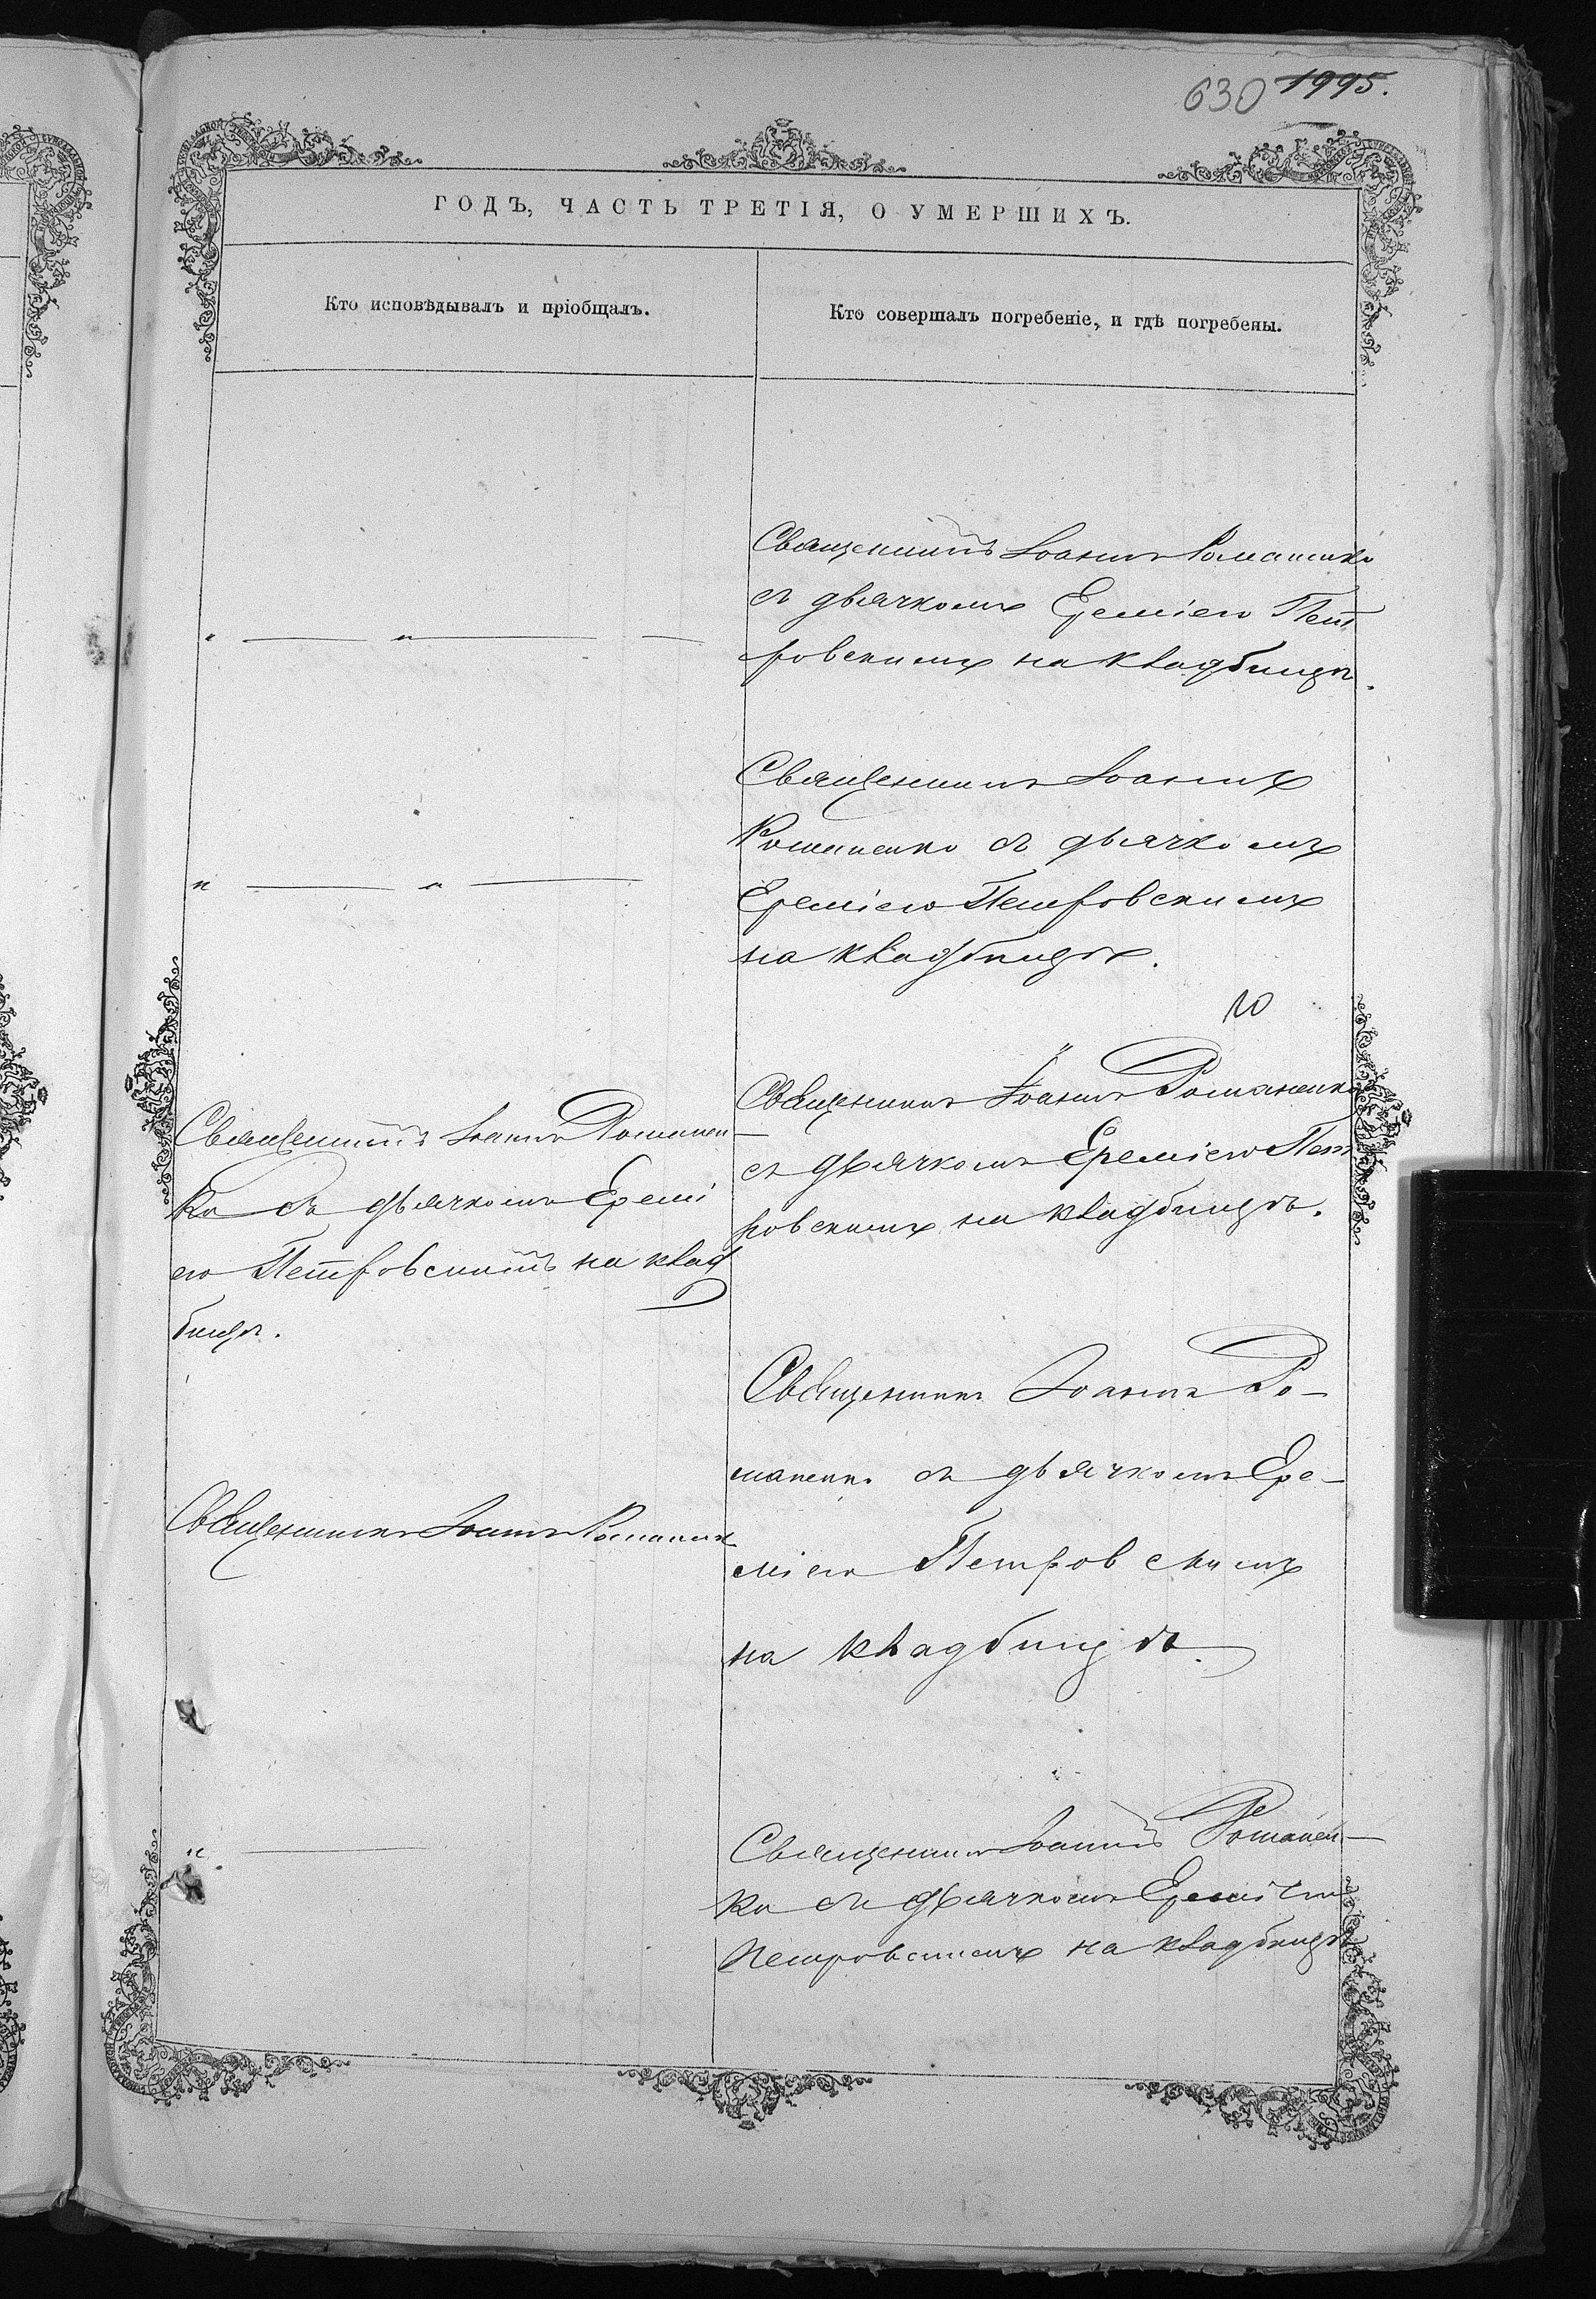 630 1995.
ГОДЪ, ЧАСТЬ ТРЕТІЯ, О УМЕРШИХЪ.
Кто исповѣдывалъ и пріобщалъ.
Кто совершалъ погребеніе, и гдѣ погребены.
Священникъ Іоаннъ Романенко
съ дьячкомъ Ереміею Пет
ровскимъ на кладбищѣ.
" — " — —
Священникъ Іоаннъ
Романенко съ дьячкомъ
Ереміею Петровскимъ
на кладбищѣ.
" — " —
Священникъ Іоаннъ Романенко
съ дьячкомъ Ереміею Пет
ровскимъ на кладбищѣ.
Священникъ Іоаннъ Романен
ко съ дьячкомъ Еремі
ею Петровскимъ на клад
бищѣ.
Священникъ Іоаннъ Ро-
маненко съ дьячкомъ Ере-
міею Петровскимъ
на кладбищѣ.
Священникъ Іоаннъ Романенк
Священникъ Іоаннъ Романен-
ко съ дьячкомъ Ереміею
Петровскимъ на кладбищѣ
" —